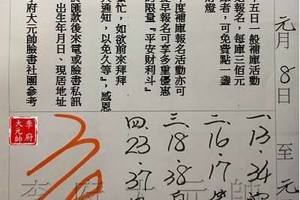 元月8日至元
五日一般補庫活動
報名，每庫三佰元
者，可免費點一盞
度補庫報名活動亦可
早報名可享多重優惠
限量『平安財利斗』
忙，如欲前來拜拜
通知，以免久等』，感恩
匯款後來電或臉書私訊
出生年月日、現居地址
府大元帥臉書社團參考
一.13.34
二.16.17
三.18.38
四.23.37
李府
大元帥